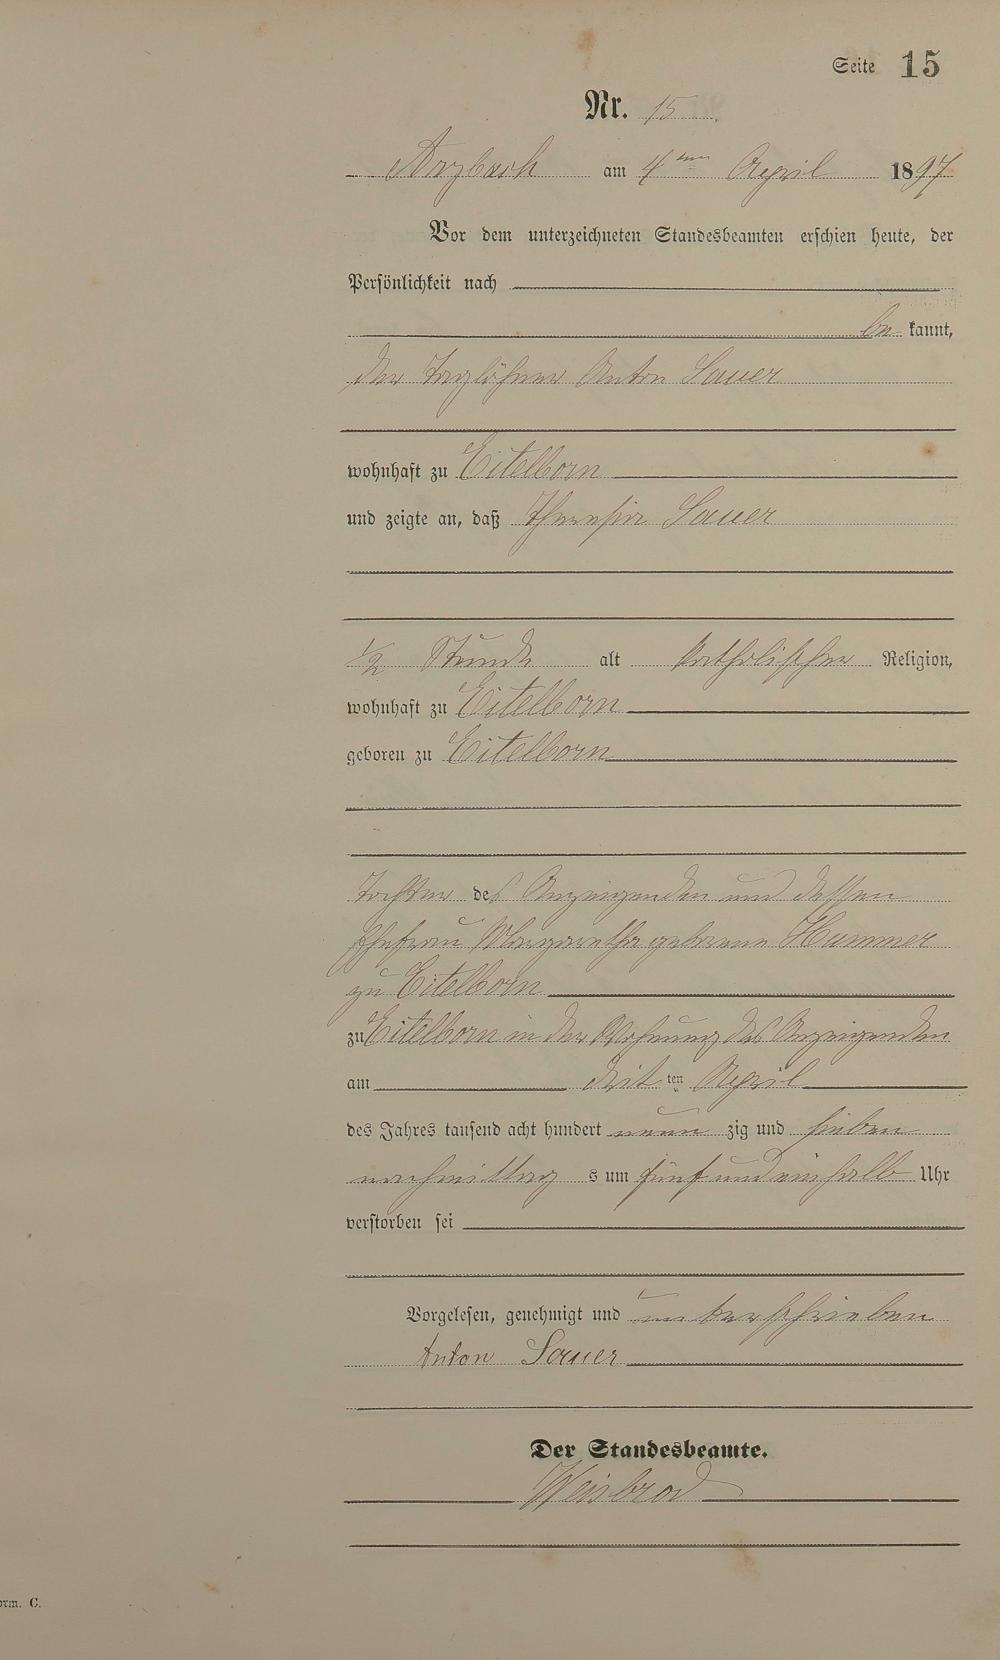 Seite 15
Nr. 15
Arzbach am 4ten April 1897
Vor dem unterzeichneten Standesbeamten erschien heute, der
Persönlichkeit nach
be kannt,
der Taglöhner Anton Sauer
wohnhaft zu Eitelborn
und zeigte an, daß Theresia Sauer
1/2 Stunde alt katholischer Religion,
wohnhaft zu Eitelborn
geboren zu Eitelborn
Tochter des Anzeigenden und dessen
Ehefrau Margaretha geborene Hummer
zu Eitelborn
zu Eitelborn in der Wohnung des Anzeigenden
am dritten April
des Jahres tausend acht hundert neun zig und sieben
nachmittag s um fünf und ein halb Uhr
verstorben sei
Vorgelesen, genehmigt und unterschrieben
Anton Sauer
Der Standesbeamte.
Weisbrod
orm. C.